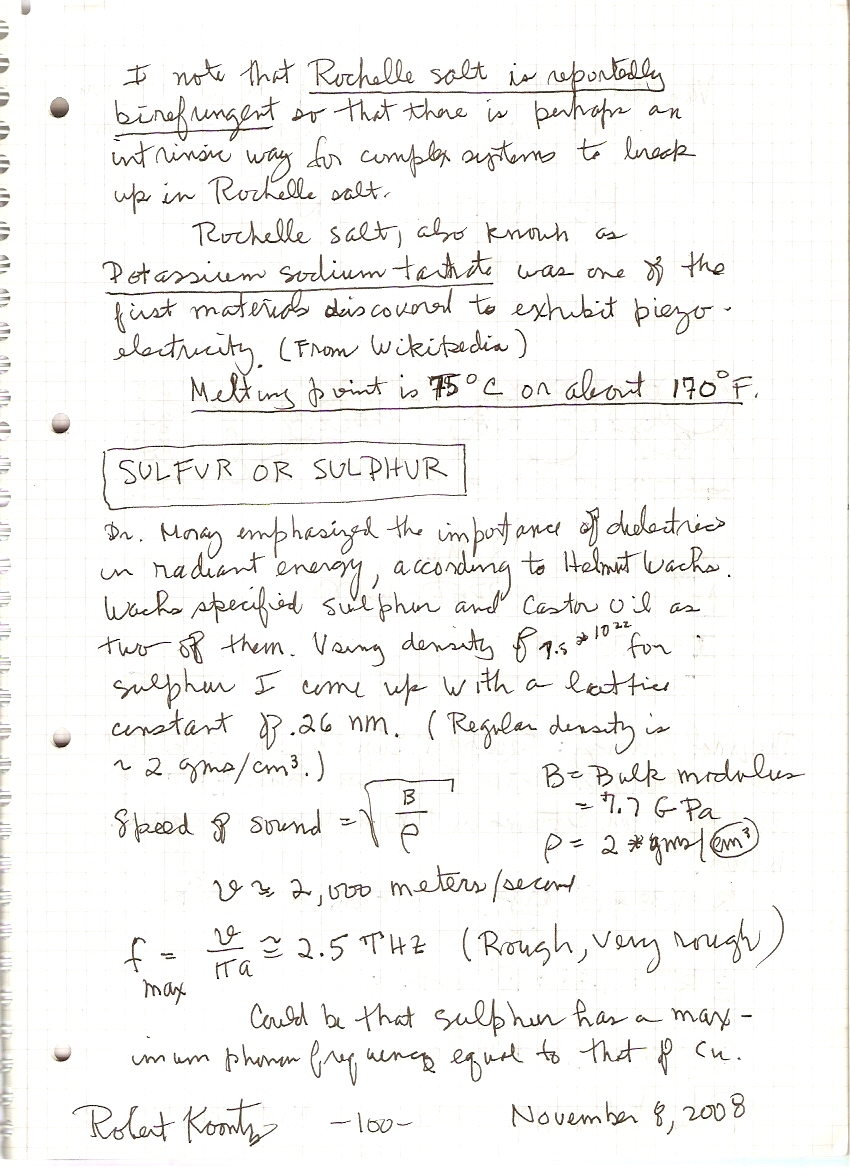 I note that Rochelle salt is reportedly
birefringent so that there is perhaps an
intrinsic way for complex systems to break
up in Rochelle salt.
Rochelle salt, also known as
Potassium sodium tartrate was one of the
first materials discovered to exhibit piezo-
electricity. (From Wikipedia)
Melting point is 75°C or about 170°F.
SULFUR OR SULPHUR
Dr. Moray emphasized the importance of dielectrics
in radiant energy, according to Helmut Wachs.
Wachs specified sulphur and Castor oil as
two of them. Using density of 7.5 * 10²² for
sulphur I come up with a lattice
constant of .26 nm. (Regular density is
~ 2 gms/cm³.)
B = Bulk modulus
= 7.7 GPa
Speed of sound = √(B/ρ)
ρ = 2 * gms/cm³
v ≃ 2,000 meters/second
f max = v/πa ≅ 2.5 THz (Rough, very rough)
Could be that sulphur has a max-
imum phonon frequency equal to that of Cu.
Robert Koontz -100- November 8, 2008